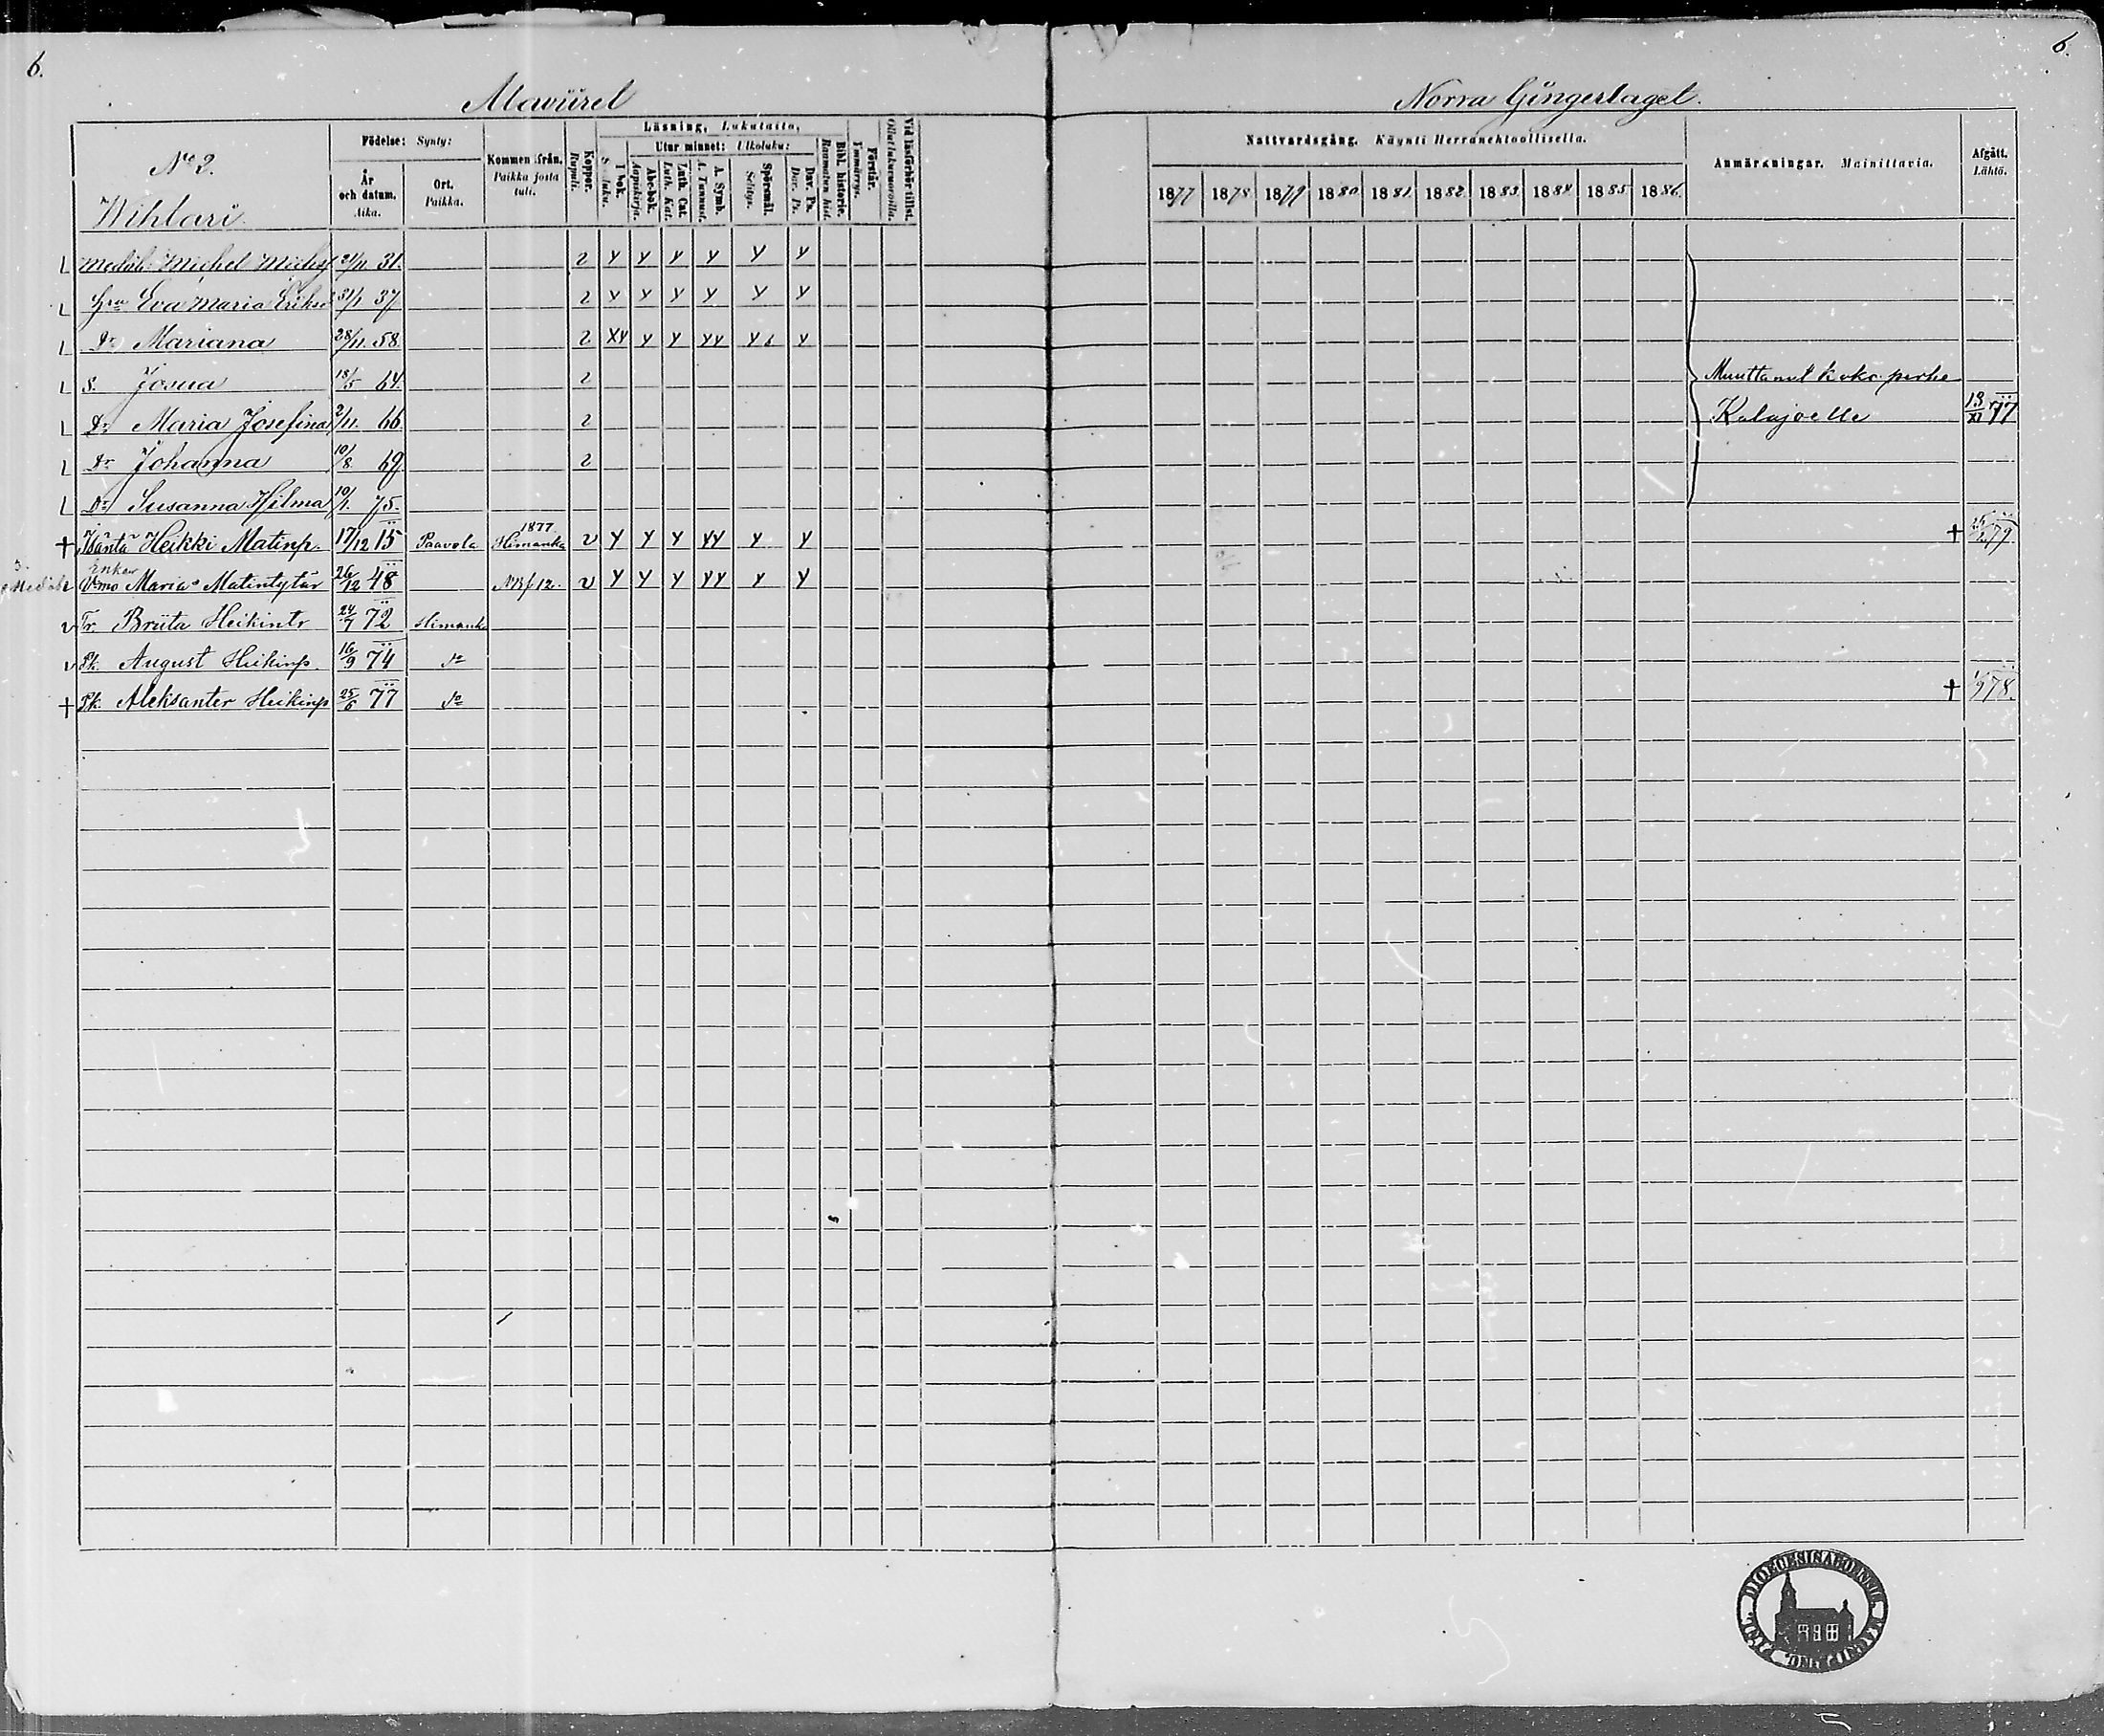 6.
6.
Alaviirel
Norra Gingerlaget.
No 2.
Wihlari.
Födelse: Synty:
År och datum. Aika.
Ort. Paikka.
Kommen ifrån. Paikka josta tuli.
Koppor. Rupuli.
Läsning, Lukutaito,
I bok.
Utur minnet: Ulkoluku:
Abc-bok. Aapiskirja.
Luth. Cat. Luth. Kat.
A. Symb. A. Tunnust.
Spörsmål. Selitys.
Dav. Ps. Dav. Ps.
Bibl. historie. Raamatun hist.
Förstår. Ymmärrys.
Vid läsförhör tillst. Ollut lukuvuorolla.
Nattvardsgång. Käynti Herranehtoollisella.
1877 1878 1879 1880 1881 1882 1883 1884 1885 1886.
Anmärkningar. Mainittavia.
Afgått. Lähtö.
Michel Michelss 21/11 31. 2 y y y y y y
Hru Eva Maria Eriksd 31/1 37 2 y y y y y y
Dr Mariana 28/11. 58. 2 xy y y yy y
S. Josua 18/5 64. 2 Muuttanut koko perhe
Dr Maria Josefina 2/11. 66 2 Kalajoelle 13/XI 77
Dr Johanna 10/8. 69 2
Dr Susanna Hilma 10/1. 75.
† Heikki Matinp. 17/12 15 Paavola 1877 Himanka 2 y y y yy y y † 79
Enker
Vmo Maria Matintytär 26/12 48 12. 2 y y y yy y y
Tr. Briita Heikintr 24/7 72 Himanka
Pk. August Heikinp 16/9 74 do
† Pk. Aleksanter Heikinp 25/6 77 do † 1/9 78.